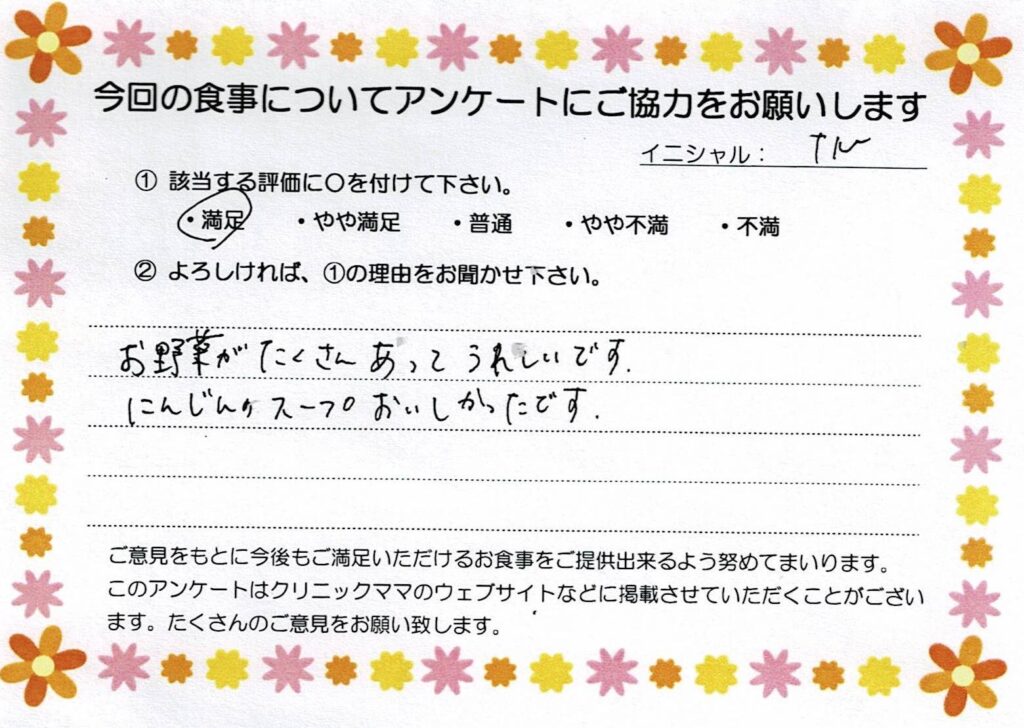 今回の食事についてアンケートにご協力をお願いします
イニシャル：
① 該当する評価に〇を付けて下さい。
・満足 ・やや満足 ・普通 ・やや不満 ・不満
② よろしければ、①の理由をお聞かせ下さい。
お野菜がたくさんあってうれしいです.
にんじん スープ おいしかったです.
ご意見をもとに今後もご満足いただけるお食事をご提供出来るよう努めてまいります。
このアンケートはクリニックママのウェブサイトなどに掲載させていただくことがござい
ます。たくさんのご意見をお願い致します。